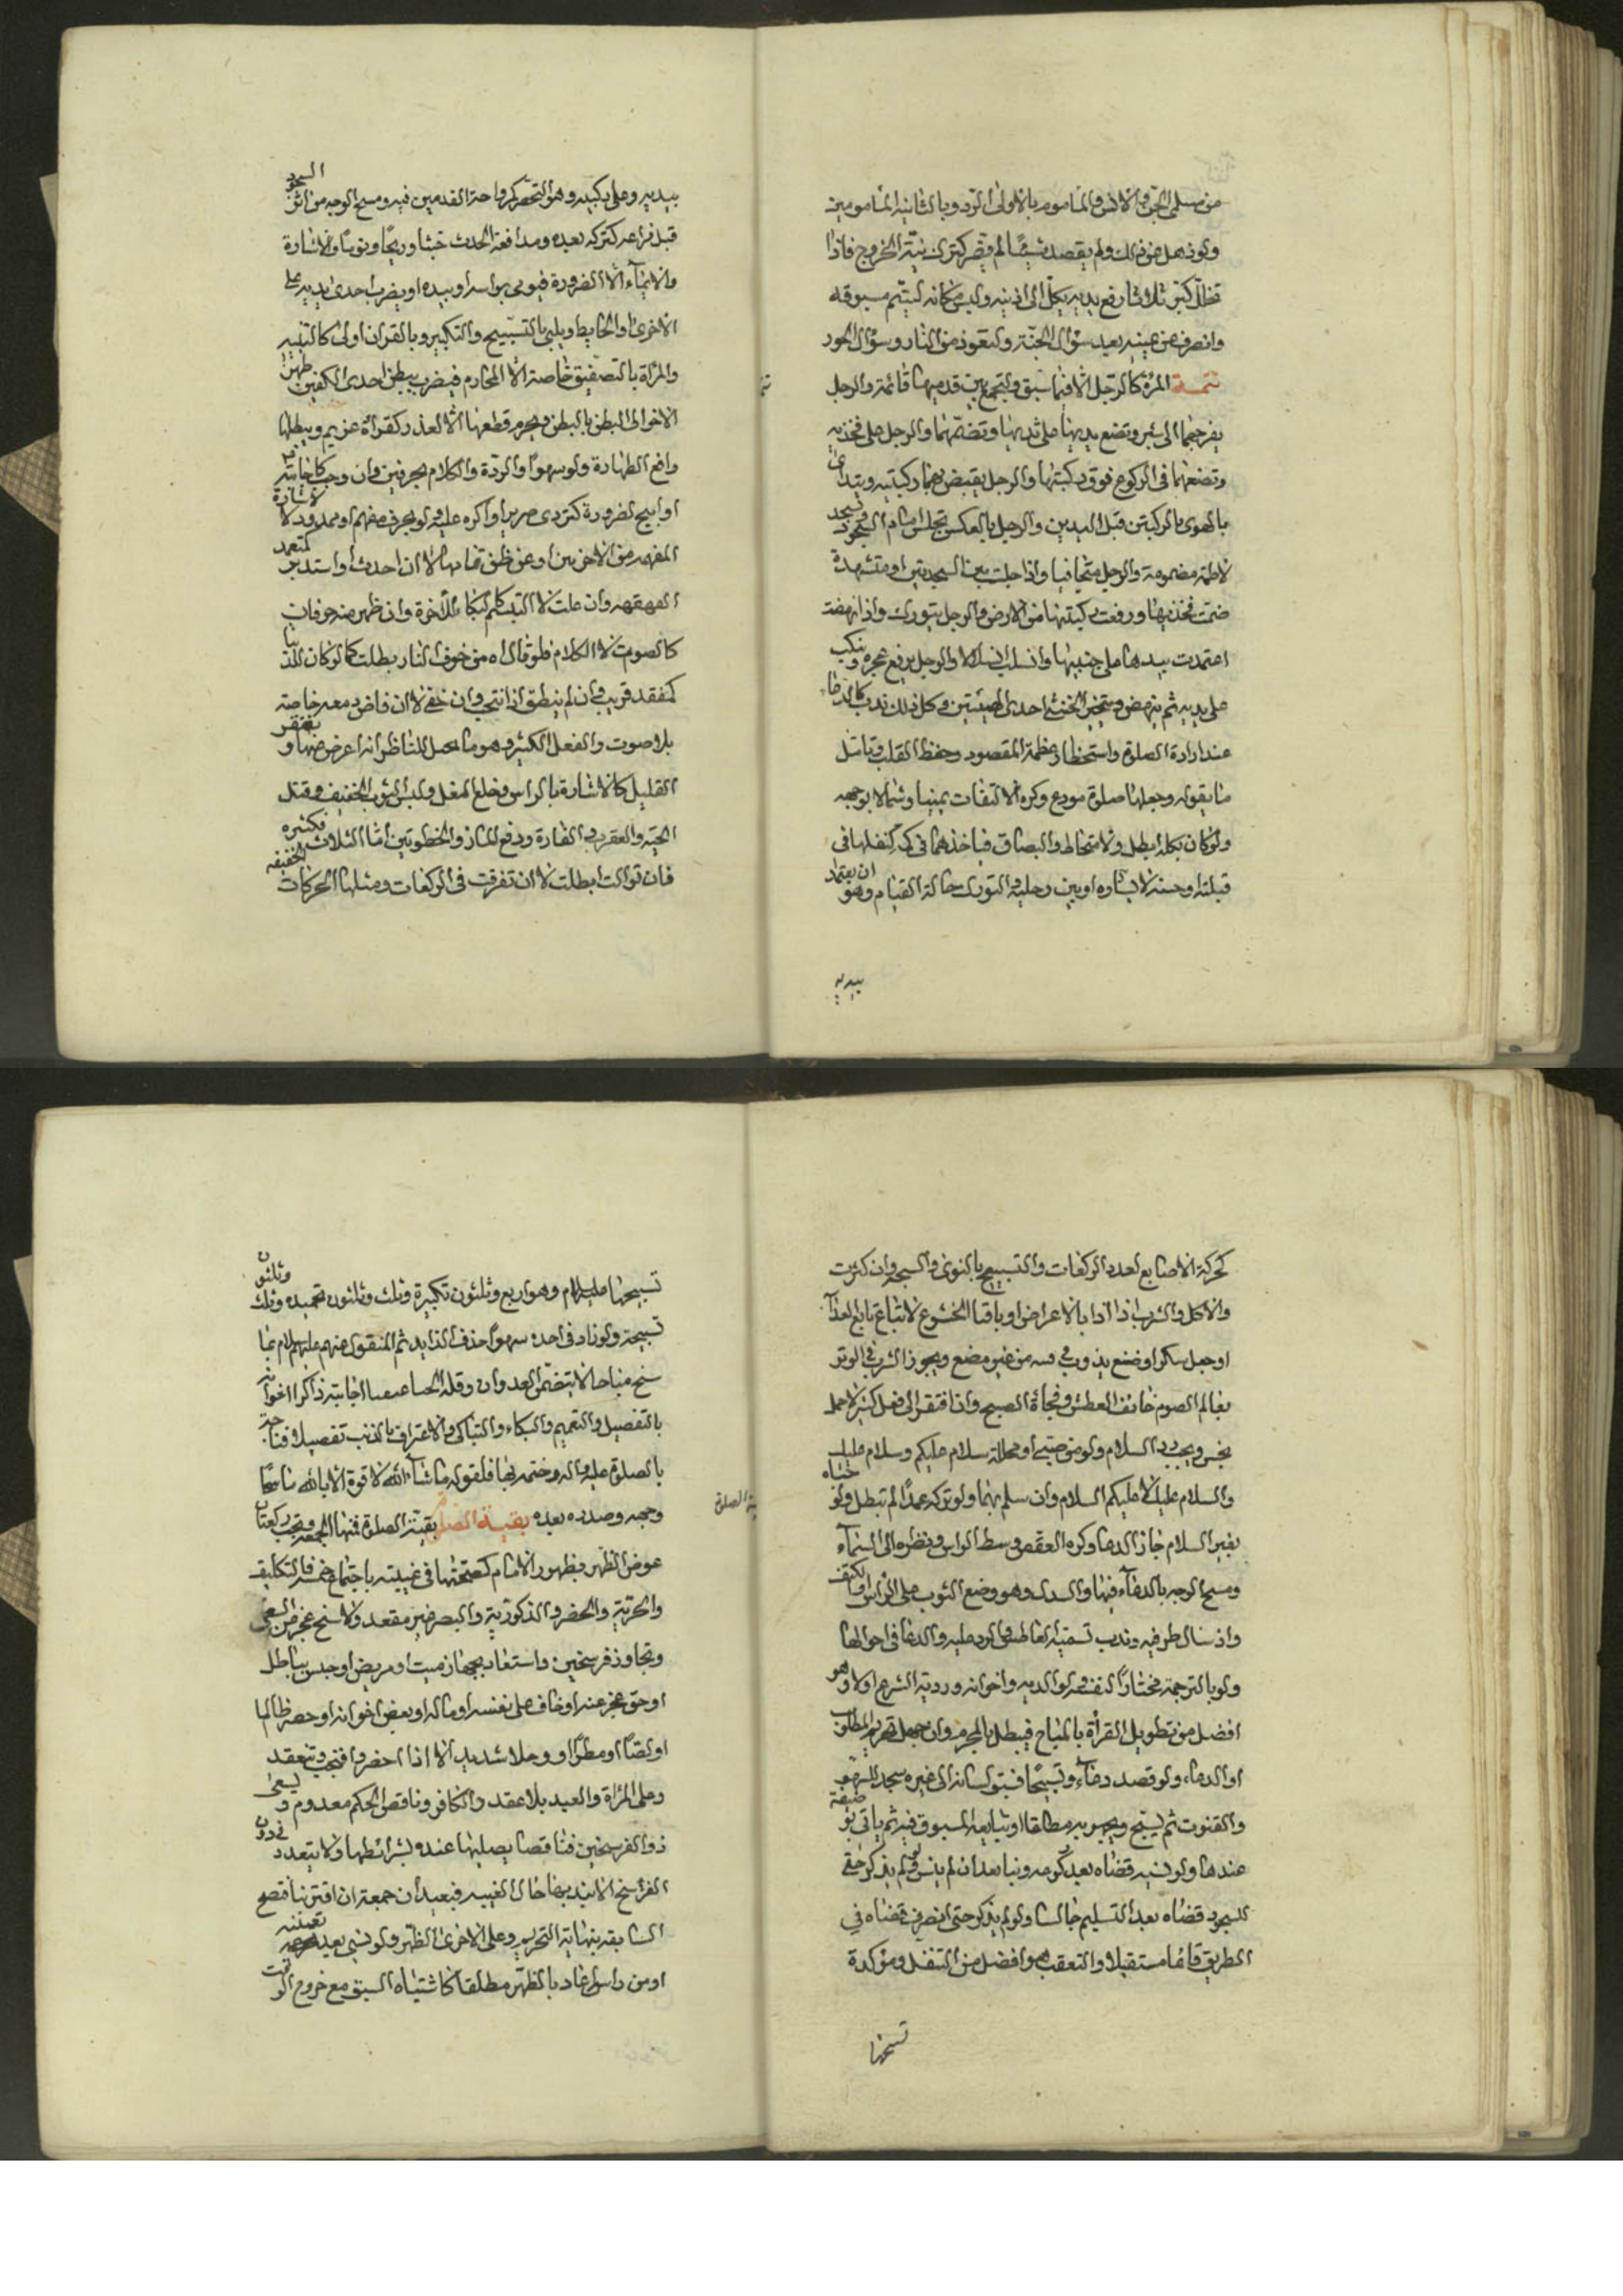 من مسلمي الجن والانس والماموم بالاولى الرد وبالثانيه المامومين
ولو ذهل عن ذلك ولم يقصد شيئا لم يضر كترك نية الخروج فاذا
تحلل كبر ثلاثا رفع يديه بكل الى اذنيه ولبث مكانه ليتم مسبوقه
وانصرف عن يمينه بعيد سؤال الجنة والتعوذ من النار وسؤال الحور
تتمة المرءة كالرجل الا فيما سبق وتجمع بين قدميها قائمة والرجل
يفرجهما الى شبر وتضع يديها على ثدييها وتضمهما والرجل على فخذيه
وتضعهما في الركوع فوق ركبتيها والرجل يقبض بهما ركبتيه وتبتدئ
بالهوي بالركبتين قبل اليدين والرجل بالعكس تجلس امام السجود وتسجد
لاطئة مضمومة والرجل متجافيا واذا جلست بين السجدتين او متشهدة
ضمت فخذيها ورفعت ركبتيها من الارض والرجل يتورك واذا نهضت
اعتمدت بيديها على جنبيها وانسلت انسلالا والرجل يرفع عجزه وينكب
على يديه ثم ينهض وتتخير الخنثى احدى الهيئتين وكل ذلك ندب كالدعاء
عند ارادة الصلوة واستحضار عظمة المقصود وحفظ القلب وتامل
ما يقوله وجعلها صلوة مودع وكره الالتفات يمينا وشمالا بوجهه
ولو كان بكله ابطل والامتخاط والبصاق فياخذهما في لا في
قبلته او يمينه لا يساره او بين رجليه والتورك حالة القيام وهو ان يعتمد
بيديه
بيديه وعلى ركبيه وهو التخصر ومراوحة القدمين فيه ومسح الوجه من اثر السجود
قبل فراغه كتركه بعيده ومدافعة الحدث خبثا وريحا ونوما والاشارة
والايماء الا الضرورة فيومي براسه او بيده او يضرب احدى يديه على
الاخرى او الحايط ويلبي بالتسبيح والتكبير وبالقران اولى كالتنبيه
والمراة بالتصفيق خاصة الا المحارم فيضرب ببطن احدى الكفين ظهر
الاخرى لا البطن بالبطن ويحرم قطعها الا لعذر كقراة عزيم ويبطلها
رافع الطهارة ولو سهوا والردة والكلام بحرفين وان وجب كاجابته
او ابيح لضرورة كتردي ضرير او اكره عليه ولو بحرف مفهم او ممدود لا اشارة
المفهمه من الاخرس او عن ظن تمامها الا ان احدث او استدبر كتعمد
القهقهه وان غلبت لا التبسم كالبكاء لا للاخرة وان ظهر منه حرفان
كالصوت لا الكلام فلو قال اه من خوف النار بطلت كما لو كان للدنيا
كفقد قريب وان لم ينطق اذا انتحب وان خفي لا ان فاض دمعه خاصة
بلا صوت والفعل الكثير وهو ما يخيل للناظر انه اعرض عنها ويغتفر
القليل كالاشارة بالراس وخلع النعل ولبس الثوب الخفيف وقتل
الحية والعقرب والفارة ودفع المار والخطوتين اما الثلاث فكثيره
فان توالت ابطلت لا ان تفرقت في الركعات ومثلها الحركات الخفيفه
كحركة الاصابع لعدد الركعات والتسبيح بالنوى والسبحه وان كثرت
والاكل والشرب اذا اذنا بالاعراض او نافيا الخشوع لا ابتلاع تابع الغذاء
او جعل سكر او صمغ يذوب في فمه من غير مضغ ويجوز الشرب في الوتر
لعازم الصوم خائف العطش وفجاة الصبح وان افتقر الى فعل كثير لاجله
يخير ويجب رد السلام ولو من صبي او محللة سلام عليكم وسلام عليك
والسلام عليك لا عليكم السلام وان سلم بهما ولو تركه عمدا لم تبطل ولو حياه
بغير السلام جاز الدعا وكره العقص وسط الراس ونظره الى السماء
ومسح الوجه بالدعاء فيها والسدل وهو وضع الثوب على الراس والكتف
وارسال طرفيه وندب تسميت العاطس والرد عليه والدعا في احوالها
ولو بالترجمة مختارا لنفسه ولوالديه واخوانه وردية الشرع اولا وهو
افضل من تطويل القراءة بالمباح فيبطل بالمحرم وان جهل تحريم المطلوب
او الدعاء ولو قصد دعاء وتسبيحا فسبق لسانه الى غيره سجد للسهو
والقنوت ثم يسبح ويجهر به مطلقا او يتابعه المسبوق فيه ثم ياتي بوظيفة
عندها ولو نسيه قضاه بعد ركوعه وتيا بعد ان لم ينس ولو لم يذكر حتى
للسجود قضاه بعد التسليم جالسا ولو لم يذكر حتى انصرف قضاه في
الطريق قائما مستقبلا والتعقيب وهو افضل من التنفل ومؤكدة
تسبيحها
تسبيحها عليها السلام وهو اربع وثلثون تكبيرة وثلث وثلثون تحميده وثلث وثلثون
تسبيحة ولو زاد في احده سهوا حذف الزايد ثم المنقول عنهم عليهم السلام ثم بما
سنح مباحا لا يتضمن العدوان وقله الحيا اجابته ذاكرا اخوانه
بالتفصيل والتعميم والبكاء والتباكي والاعتراف بالذنب تفصيلا وفاتحه
بالصلوة عليه واله وختمه بها فلقوله ما شاء الله لا قوة الا بالله ماسحا
وجهه وصدره بعده بقية الصلوة بقية الصلوة فمنها الجمعه وتجب ركعتان
عوض الظهر بظهور الامام كصحتها في غيبته باجتماع خمسة والتكليف
والحرية والحضر والذكورية والبصر غير مقعد ولا شيخ عجز عن السعي
وتجاوز فرسخين واستعد بجهاز ميت او مريض او حبس بباطل
او حق عجز عنه او خاف على نفسه او ماله او بعض اخوانه او حضر ظالما
او لصا او مطرا ووحلا شديدا الا اذا حضروا فتجب وتنعقد
وعلى المراة والعبد بلا عقد والكافر وناقص الحكم معدوم ويسعى
ذو الفرسخين فناقصا يصليها عنده بشرائطها ولا يتعدد في دون
الفرسخ الا يندبها حال الغيبه فيعيدان جمعة ان اقترنا وتصح
السابقه بنهاية التحريم وعلى الاخرى الظهر ولو نسي بعيد تعينه
او من راس اعاد بالظهر مطلقا كاشتباه السبق مع خروج الوقت
بقية الصلوة